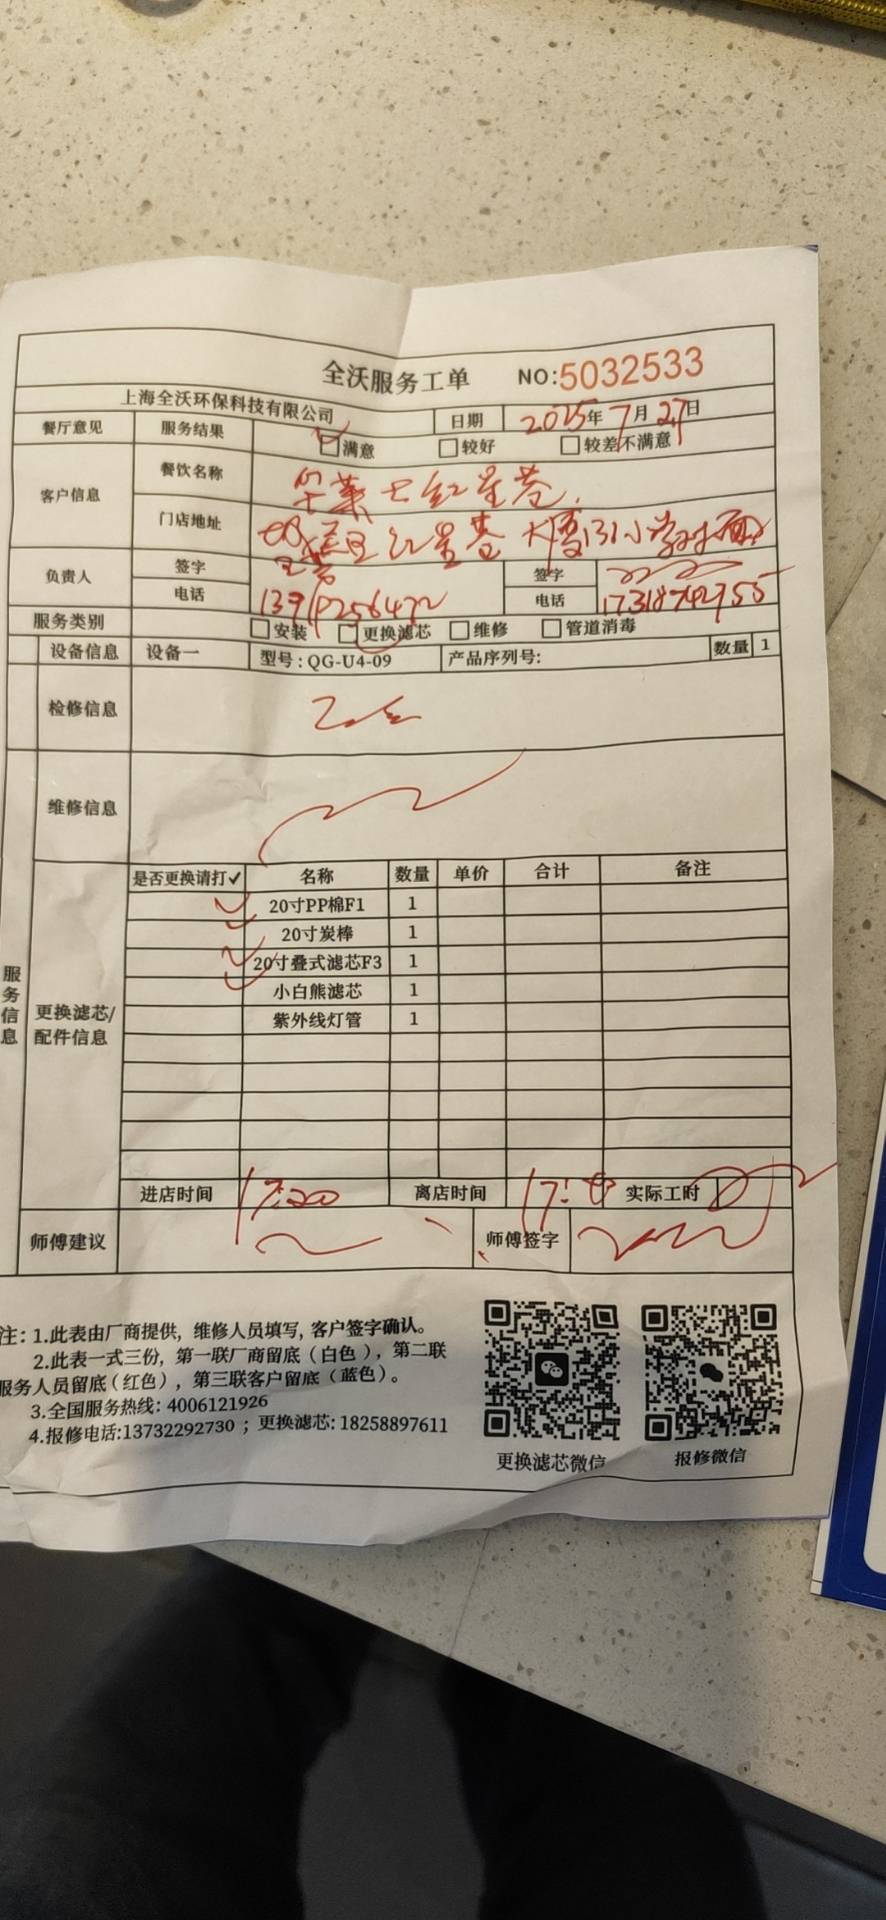 全沃服务工单 NO:5032533
上海全沃环保科技有限公司 日期 2025年7月27日
餐厅意见 服务结果 满意 较好 较差不满意
客户信息 餐饮名称 红星巷
门店地址 红星巷 小学对面
负责人 签字 签字
电话 电话 17318742955
服务类别 安装 更换滤芯 维修 管道消毒
设备信息 设备一 型号:QG-U4-09 产品序列号: 数量 1
检修信息
维修信息
服务信息
更换滤芯/配件信息
是否更换请打✓ 名称 数量 单价 合计 备注
✓ 20寸PP棉F1 1
✓ 20寸炭棒 1
✓ 20寸叠式滤芯F3 1
✓ 小白熊滤芯 1
紫外线灯管 1
进店时间 17:20 离店时间 实际工时
师傅建议 师傅签字
注: 1.此表由厂商提供, 维修人员填写, 客户签字确认。
2.此表一式三份, 第一联厂商留底(白色), 第二联
服务人员留底(红色), 第三联客户留底(蓝色)。
3.全国服务热线: 4006121926
4.报修电话:13732292730 ; 更换滤芯: 18258897611
更换滤芯微信 报修微信